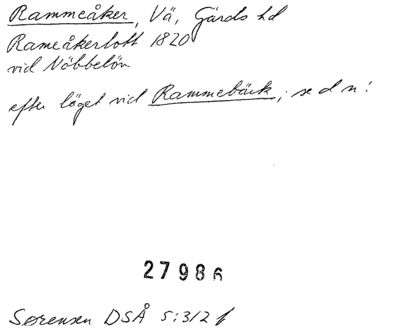 Rammeåker, Vä, Gärds hd
Rameåkerlott 1820
vid Nöbbelöv
efter läget vid Rammebäck; se d n!
27986
Sørensen DSÅ 5:312 f